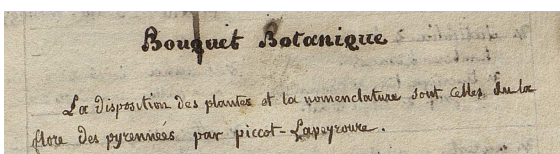 Bouquet Botanique
La disposition des plantes et la nomenclature sont celles de la
flore des pyrennées par piccot-Lapeyrouse.